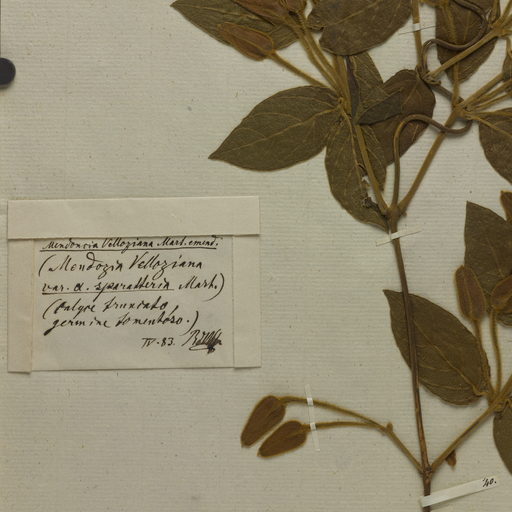 Mendoncia Velloziana Mart. emend.
(Mendozia Velloziana
var. α. sparatteria Mart.)
(Calyce truncato,
germine tomentoso.)
IV.83.
40.